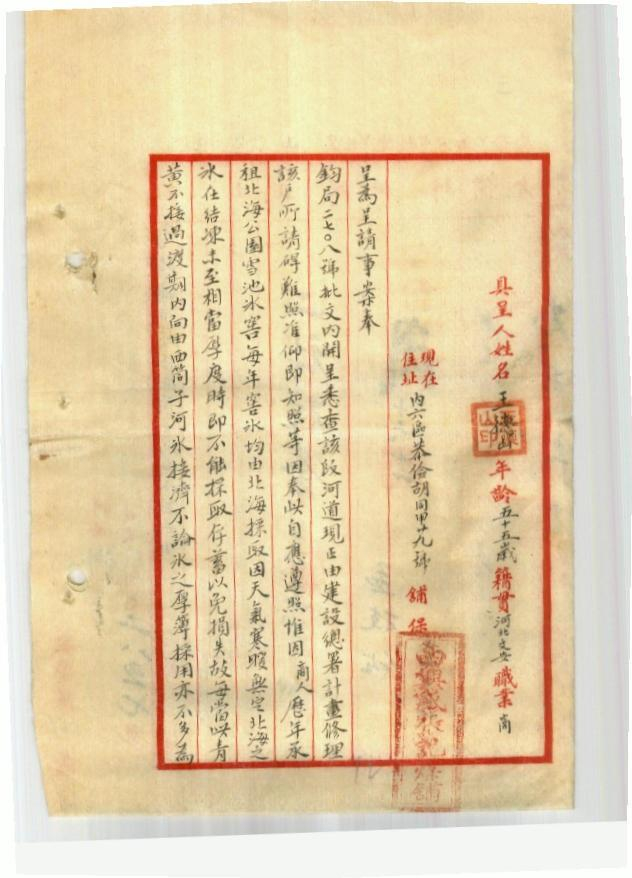 具呈人姓名 王德山 年齡 五十五歲 籍貫 河北文安 職業 商
現在住址 內六區恭儉胡同甲廿九號 鋪保
呈為呈請事案奉
鈞局二七〇八號批文內開呈悉查該段河道現正由建設總署計畫修理
該戶所請碍難照准仰即知照等因奉此自應遵照惟因商人歷年承
租北海公園雪池冰窖每年窖冰均由北海採取因天氣寒暖無定北海之
冰在結凍未至相當厚度時即不能採取存蓄以免損失故每當此青
黃不接過渡期內向由西筒子河冰接濟不論冰之厚薄採用亦不多為